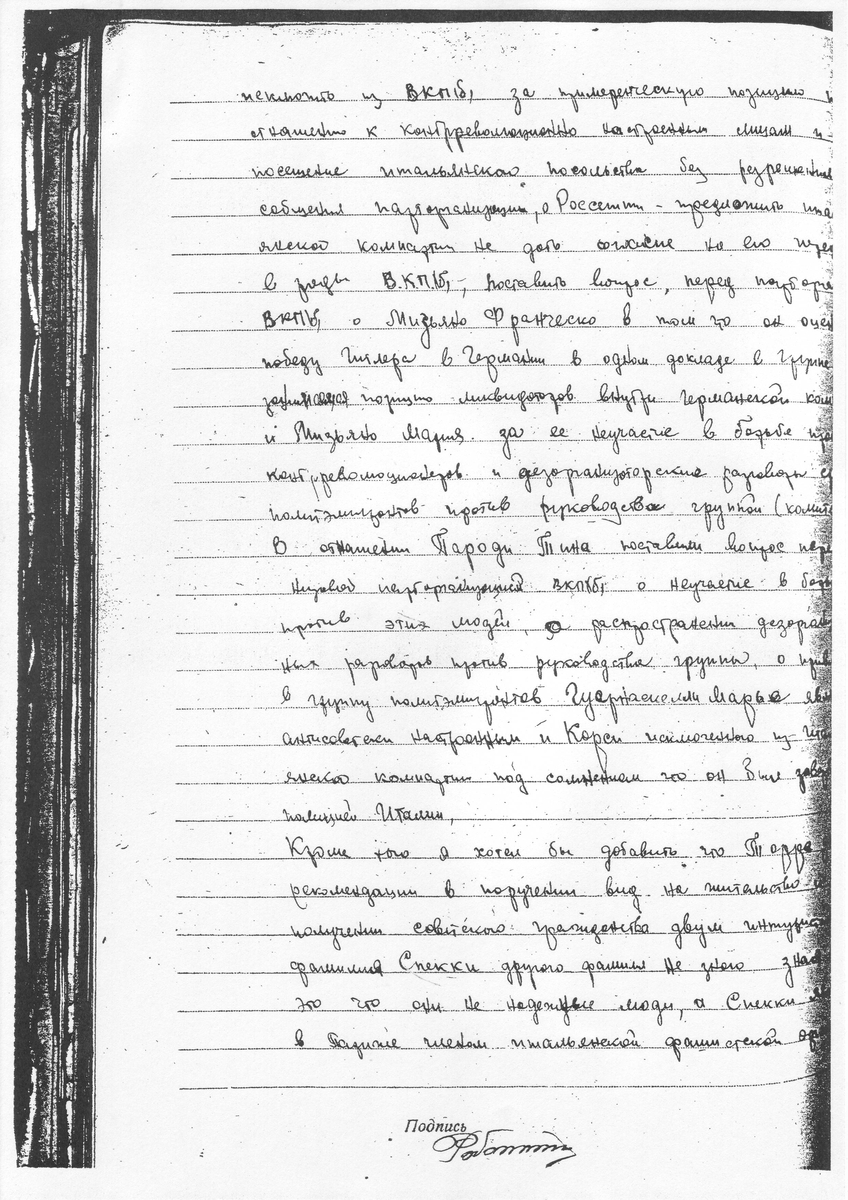 исключить из ВКП/б, за примеренческую позицию
отнашению к контрреволюционно настроенным лицам и
посещение итальянского посольства без
парторганизации, о Россетти - предложить
янской компартии не дать согласие на его
в ряды В.КП/б,-, поставить вопрос, перед
ВКП/б, о Мизьяно Франческо в том что он
победу Гитлера в Германии в одном докладе в группе
позицию ликвидаторов внутри германской
и Мизьяно Мария за ее неучастие в борьбе
контрреволюционеров и дезорганизаторские разговоры
политэмигрантов против руководства группой
В отнашении Пароди Тина поставили вопрос
низовой парторганизацией ВКП/б, о неучастие в
против этих людей, о распространении
ных разговоров против руководства группы, о
в группу политэмигрантов Гуарнаскелли Марьо
антисоветски настроенным и Корси исключенного из
янской компартии под сомнением что он был
полицией Италии,
Кроме того я хотел бы добавить что
рекомендации в поручении вид на жительство
получении советского гражданства двум
фамилия Спекки другого фамиля не знаю
это что они не надежные люди, а Спекки
в Париже членом итальянской фашистской
Подпись